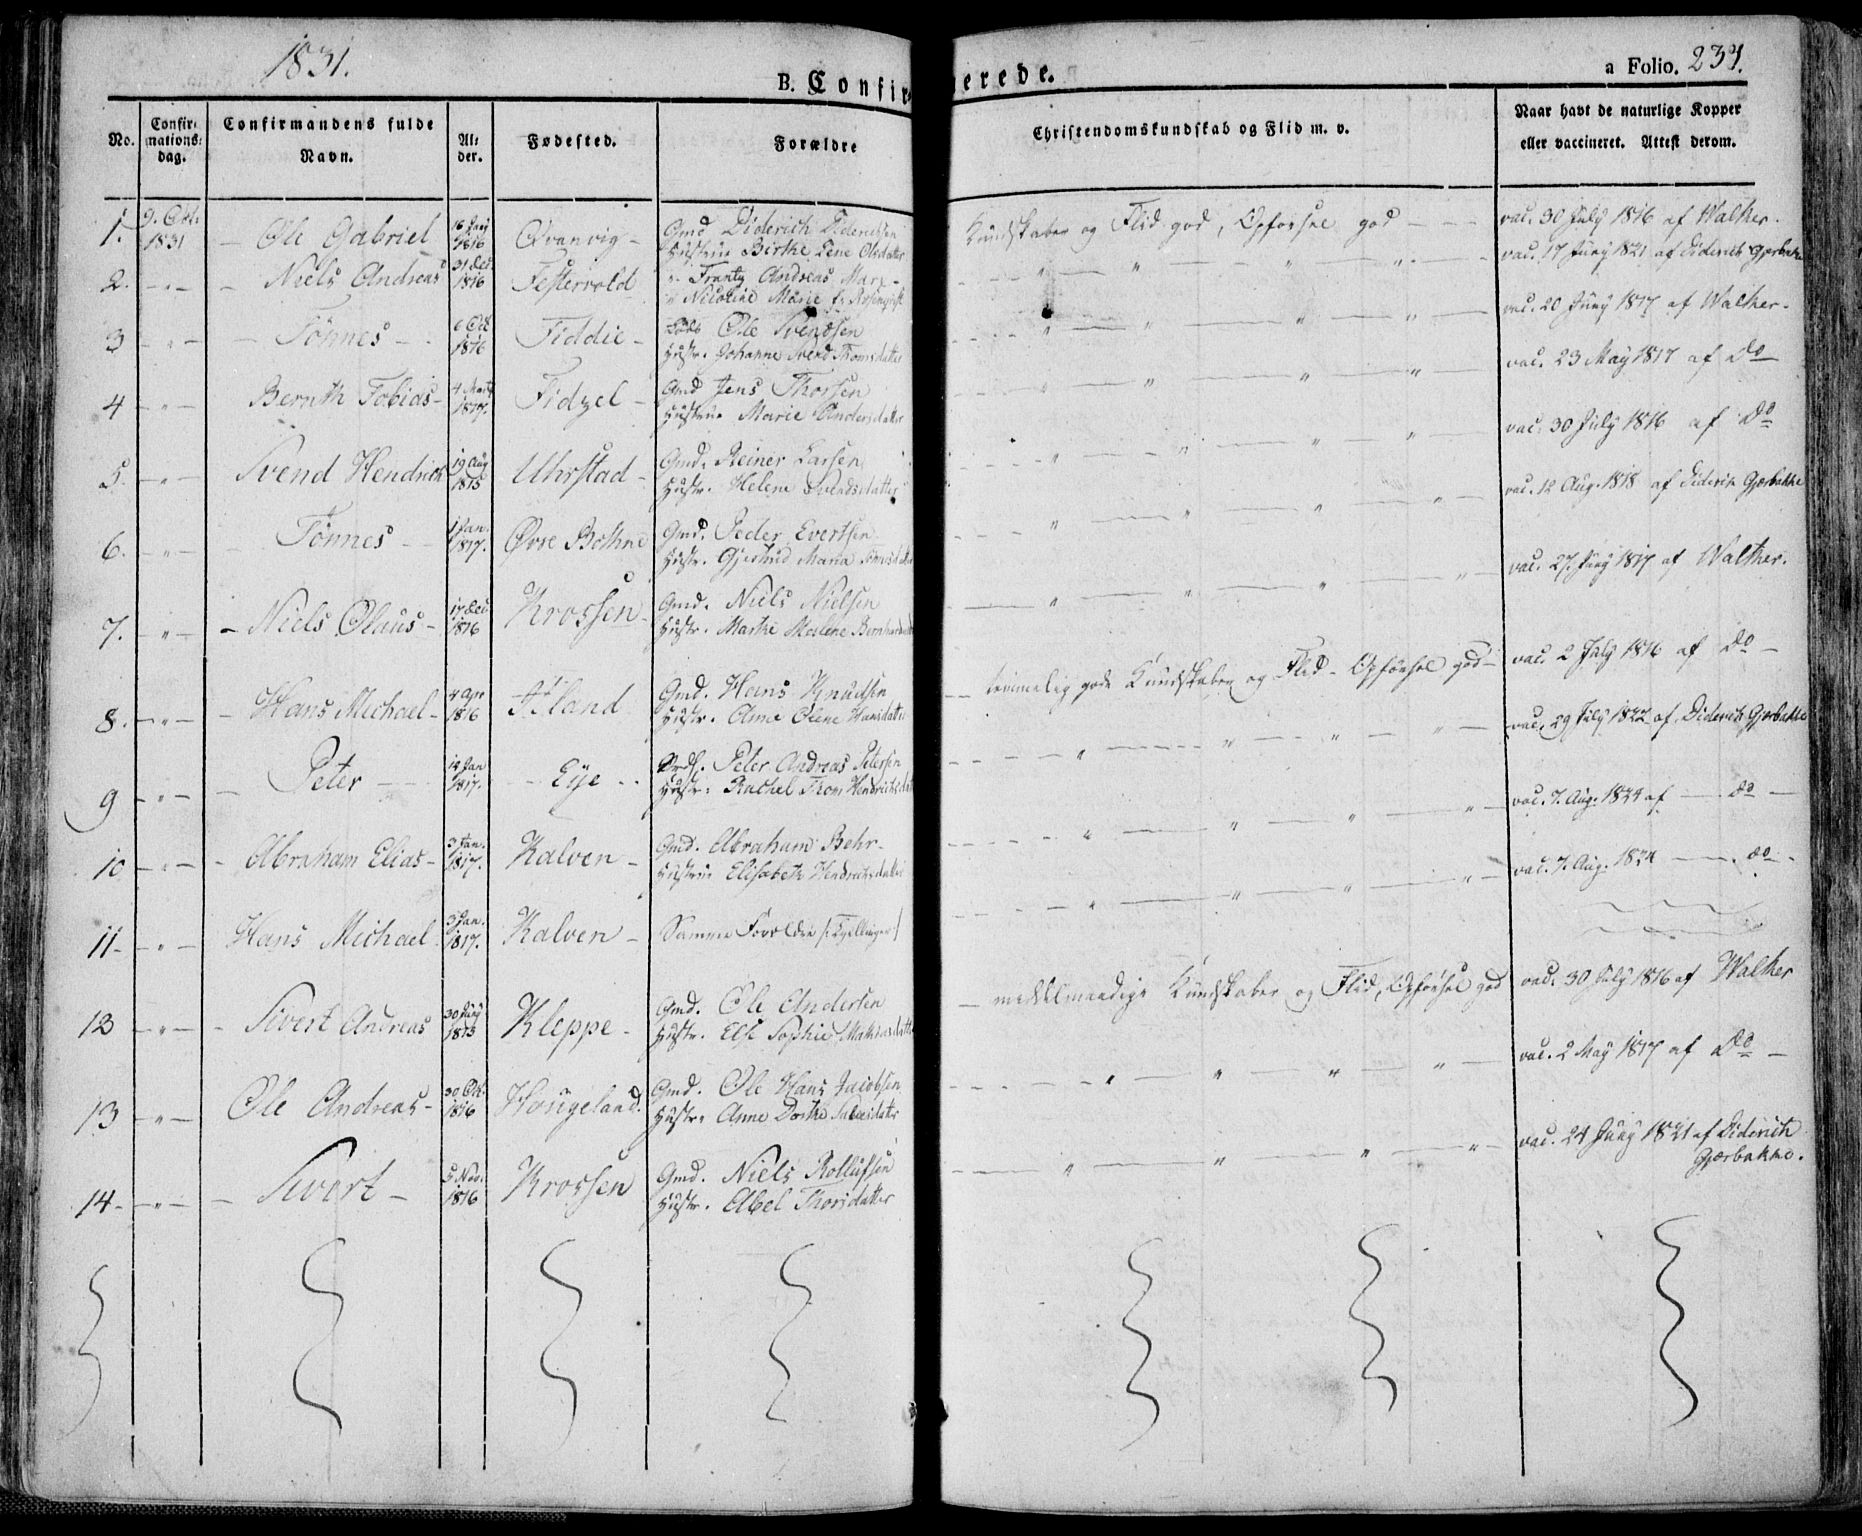 1831.
B. Confirmerede.
a Folio. 234.
No.
Confir-
mations-
dag.
Confirmandens fulde
Navn.
Al-
der.
Fødested.
Forældre
Christendomskundskab og Flid m. v.
Naar havt de naturlige Kopper
eller vaccineret. Attest derom.
1. 9. Oct. 1831 – Ole Gabriel 1816 Qvanvig – Gmd Diderich Didrichsen
Hustrue Birthe Lene Olsdatter
Kundskaber og Flid god, Opførsel god – – – vac. 30 July 1816 af Walther.
2. – " – – Niels Andreas 31 Dec. 1816 Festervold " Frantz Andreas Marx –
" Nicoline Marie
vac. 17 Juny 1821 af Diderich Gjerbakke
3 – " – – Tönnes – 6 Oct 1816 Fiddie – Ole Svendsen
Hustr. Johanne Svend Thomsdatter
vac. 20 Juny 1817 af Walther.
4 – " – Bernth Tobias – 4 Marts 1817. Fidzel – Gmd Jens Thorsen
Hustrue Marie Andersdatter
vac. 23 May 1817 af Do
5. – " – Svend Hendrich 19 Aug 1815 Uhrstad – Gmd. Reiner Larsen
Hustr. Helene Svendsdatter
vac. 30 July 1816 af Do
6. – " – – Tönnes – 1 Jan. 1817. Øvre Bothne Gmd. Peder Evertsen
Hustr. Gjertrud Maria
vac. 12 Aug. 1818 af Diderich Gjerbakke
7. – " – – Niels Olaus – 17 Dec 1816 Krossen – Gmd. Niels Nielsen
Hustr. Marthe Malene
vac. 27. Juny 1817 af Walther.
8. – " – – Hans Michael – 4 Apr 1816 Gmd. Hans Knudsen
Hustr. Anne Olene Hansdatter
– – temmelig gode Kundskaber og Flid – Opførsel god – vac. 2 July 1816 af Do –
9 – " – – Peter – 12 Jan 1817. – Eye – Peter Andreas Petersen
Hustr. Rachel Thom
vac. 29 July 1822 af Diderich Gjerbakke
10 – " – – Abraham Elias – 3 Jan. 1817. Kalven – Gmd. Abraham Behr –
Hustrue Elisabeth Hendrichsdatter
vac. 7. Aug. 1824 af – do –
11 – " – Hans Michael 3 Jan. 1817. Kalven – Samme Forældre /: Tvillinger :/
vac. 7. Aug. 1824 – do –
12 – " – – Sivert Andreas 1815 Kleppe – Gmd. Ole Andersen
Hustr. Else Sophie Mathiasdatter
– middelmaadige Kundskaber og Flid, Opførsel god vac. 30 July 1816 af Walther
13 – " – Ole Andreas – 30 Oct. 1816 Hougeland. Gmd. Ole Hans Jacobsen
Hustr. Anne Dorthe
vac. 2 May 1817 af Do –
14 – " – – Sivert – 5 Nov. 1816 Krossen Gmd. Niels Rollufsen
Hustr. Abel Thorsdatter
vac. 24 Juny 1821 af Diderich
Gjerbakke.